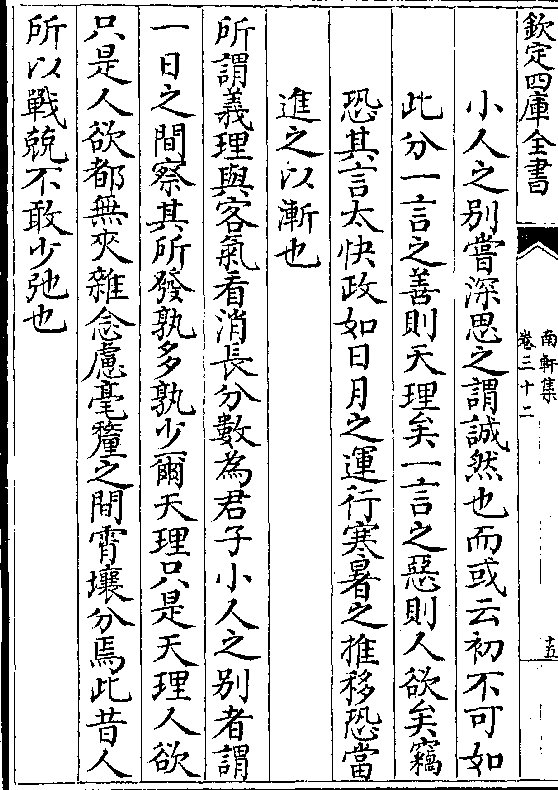 欽定四庫全書
南軒集
卷三十二
十五
小人之别嘗深思之謂誠然也而或云初不可如
此分一言之善則天理矣一言之惡則人欲矣竊
恐其言太快政如日月之運行寒暑之推移恐當
進之以漸也
所謂義理與客氣看消長分數為君子小人之别者謂
一日之間察其所發孰多孰少爾天理只是天理人欲
只是人欲都無夾雜念慮毫釐之間霄壤分焉此昔人
所以戰兢不敢少弛也